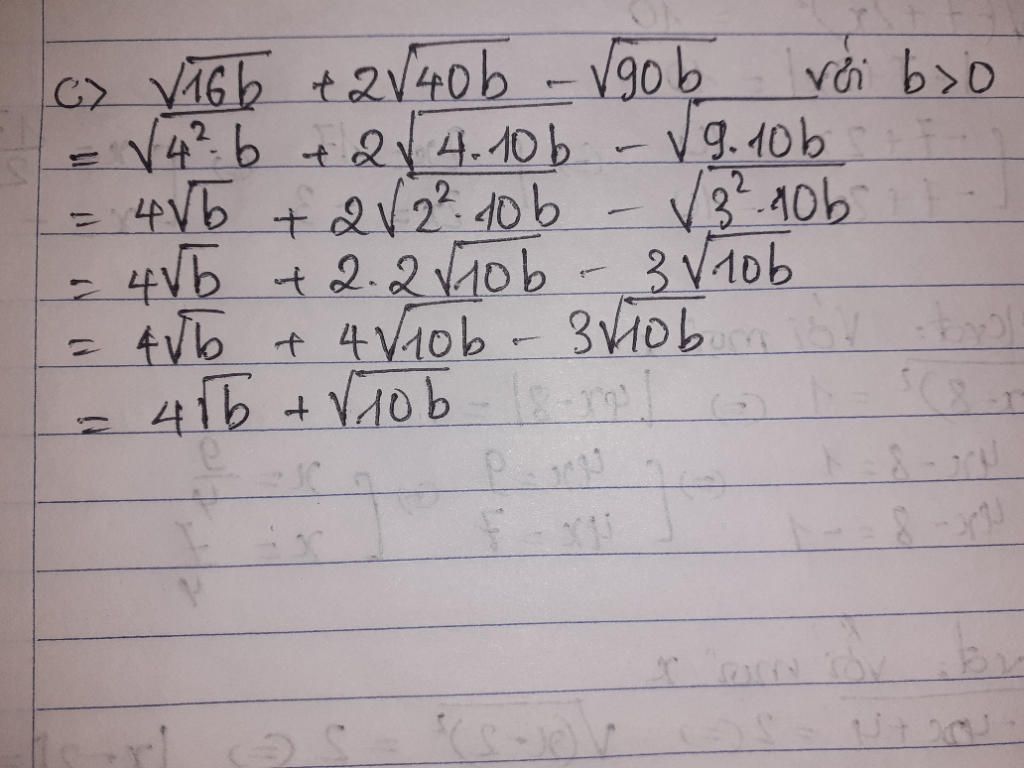 c> √16b + 2√40b - √90b với b>0
= √4²·b + 2√4.10b - √9.10b
= 4√b + 2√2²·10b - √3²·10b
= 4√b + 2.2√10b - 3√10b
= 4√b + 4√10b - 3√10b
= 4√b + √10b